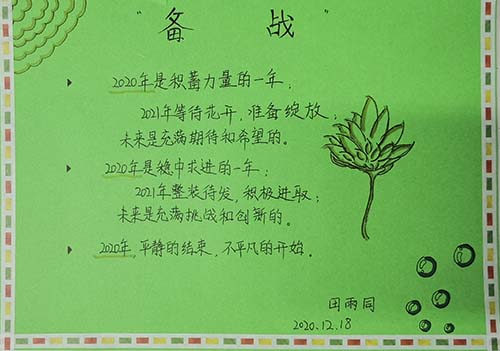 "备 战"
2020年是积蓄力量的一年；
2021年等待花开，准备绽放；
未来是充满期待和希望的。
2020年是稳中求进的一年；
2021年整装待发，积极进取；
未来是充满挑战和创新的。
2020年，平静的结束，不平凡的开始。
田雨同
2020.12.18